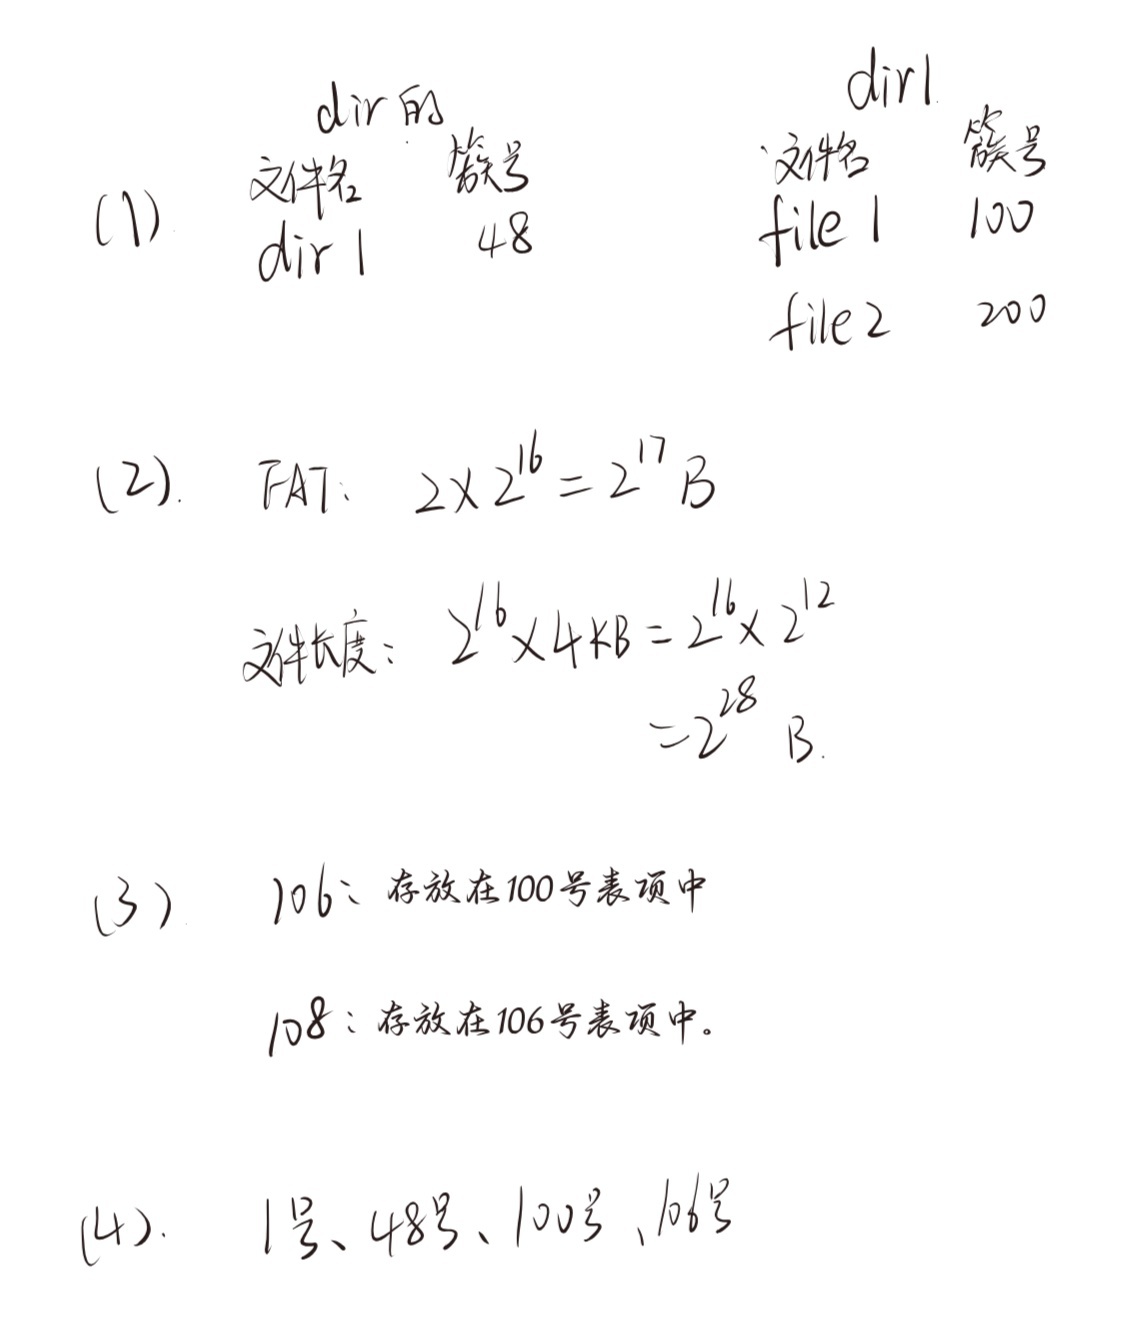 dir的 dir1
文件名 簇号 文件名 簇号
(1) dir1 48 file1 100
file2 200
(2). FAT: 2×2^16=2^17 B
文件长度: 2^16×4KB=2^16×2^12
=2^28 B.
(3) 106: 存放在100号表项中
108: 存放在106号表项中。
(4). 1号、48号、100号、106号